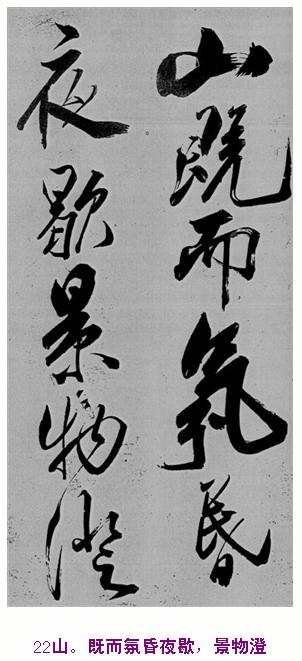 山既而氣昏
夜歇景物澄
22山。既而氛昏夜歇，景物澄